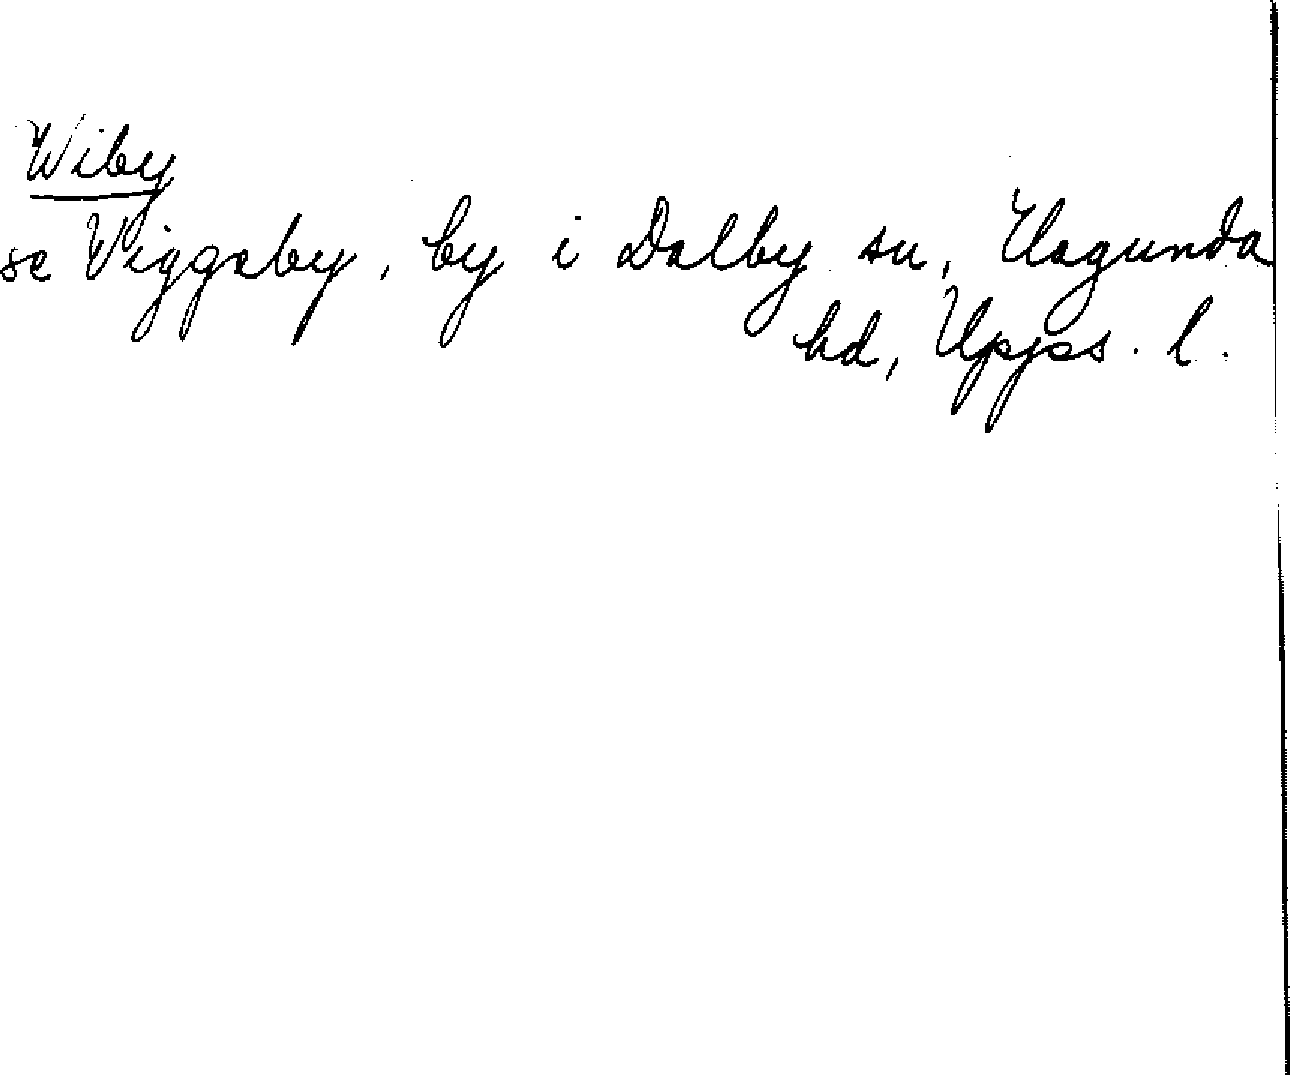 Wiby
se Viggeby, by i Dalby sn, Hagunda
hd, Upps. l.